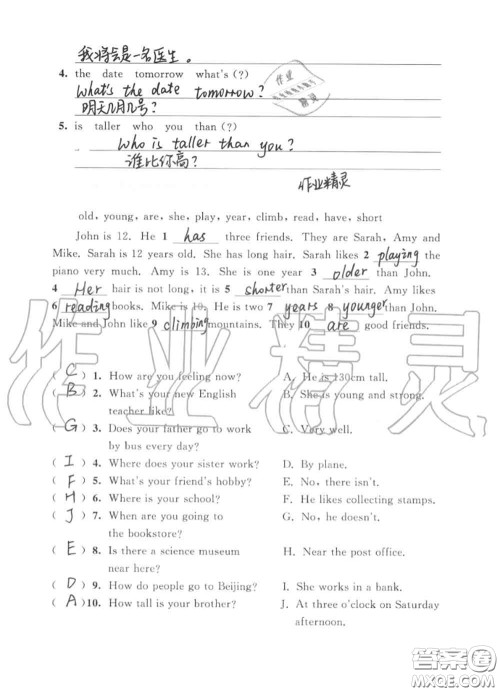 我将会是一名医生。
4. the date tomorrow what's(?)
What's the date tomorrow?
明天几月几号?
5. is taller who you than(?)
Who is taller than you?
谁比你高?
作业精灵
old, young, are, she, play, year, climb, read, have, short
John is 12. He 1 has three friends. They are Sarah, Amy and
Mike. Sarah is 12 years old. She has long hair. Sarah likes 2 playing the
piano very much. Amy is 13. She is one year 3 older than John.
4 Her hair is not long, it is 5 shorter than Sarah's hair. Amy likes
6 reading books. Mike is 10. He is two 7 years 8 younger than
John. Mike and John like 9 climbing mountains. They 10 are good friends.
作业精灵
( C ) 1. How are you feeling now? A. He is 130cm tall.
( B ) 2. What's your new English B. She is young and strong.
teacher like? C. Very well.
( G ) 3. Does your father go to work
by bus every day?
( I ) 4. Where does your sister work? D. By plane.
( F ) 5. What's your friend's hobby? E. No, there isn't.
( H ) 6. Where is your school? F. He likes collecting stamps.
( J ) 7. When are you going to G. No, he doesn't.
the bookstore?
( E ) 8. Is there a science museum H. Near the post office.
near here?
( D ) 9. How do people go to Beijing? I. She works in a bank.
( A ) 10. How tall is your brother? J. At three o'clock on Saturday
afternoon.
答案圈
MXQE.COM